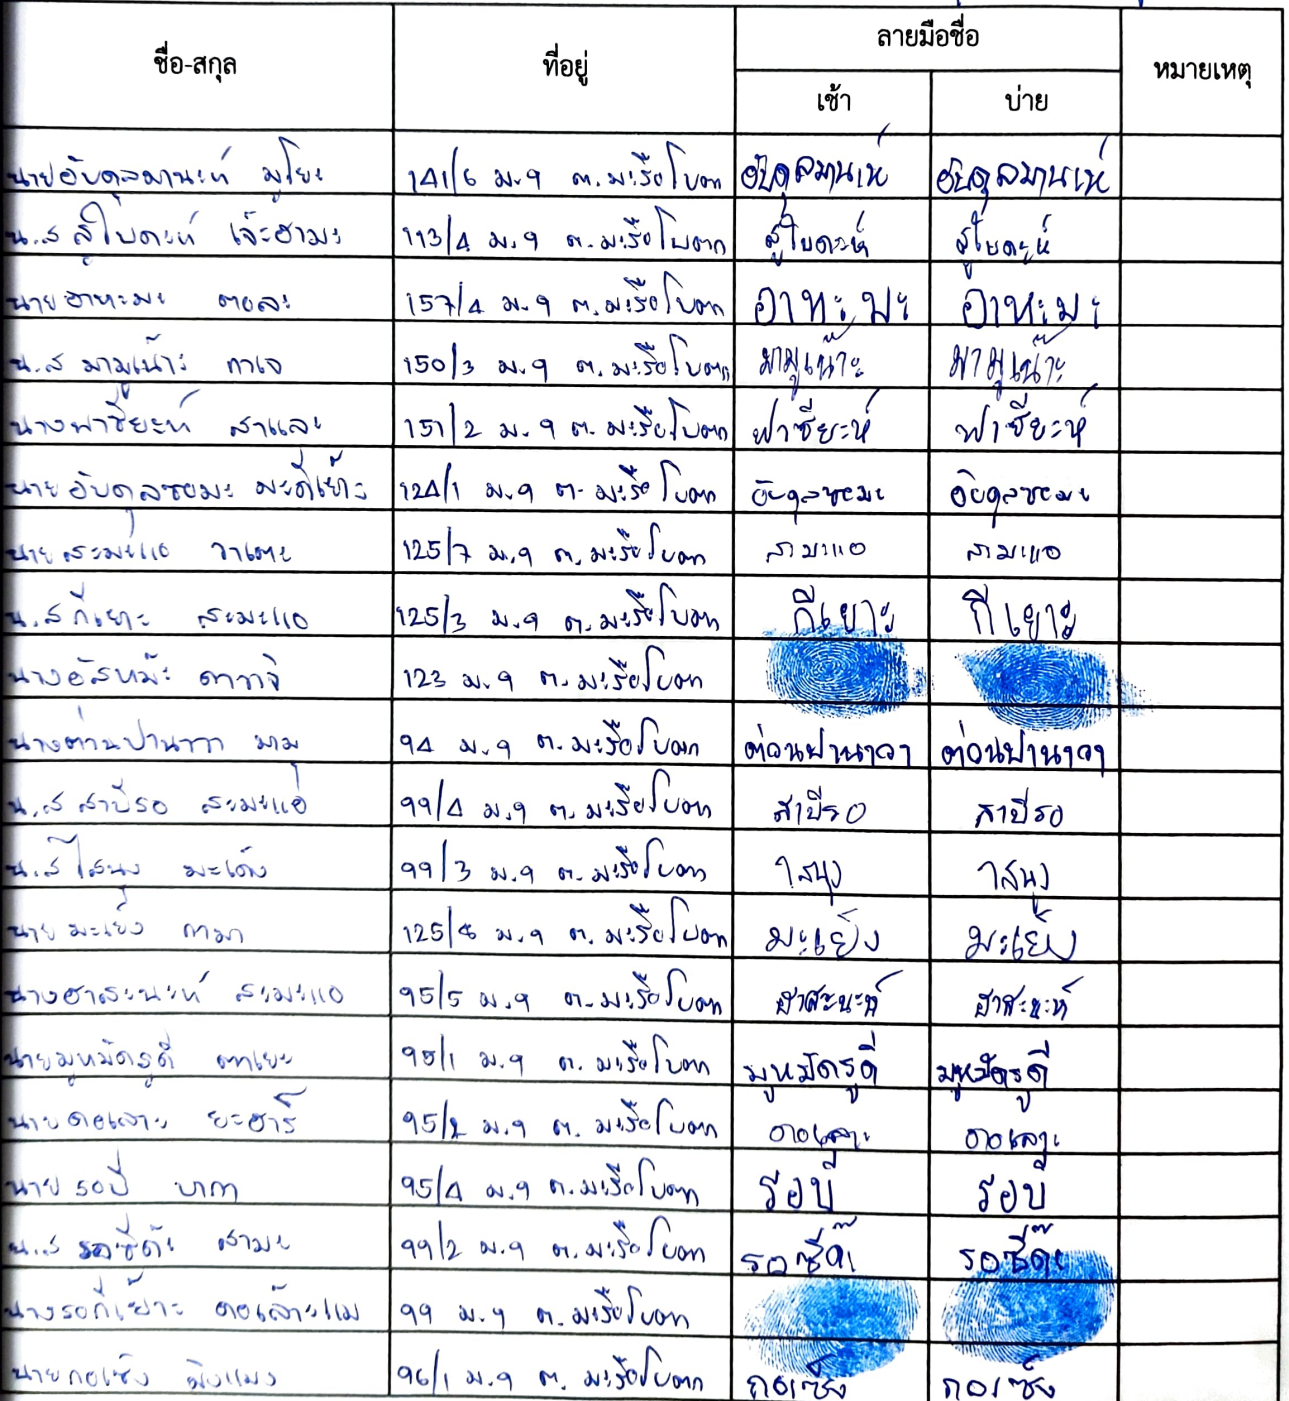 ชื่อ-สกุล ที่อยู่ ลายมือชื่อ หมายเหตุ
เช้า บ่าย
นายอับดุลมานะห์ มูโยะ 141/6 ม.9 ต.มะรือโบตก อับดุลมานะห์ อับดุลมานะห์
น.ส สูไบดะห์ เจ๊ะฮามะ 113/4 ม.9 ต.มะรือโบตก สูไบดะห์ สูไบดะห์
นายอาหะมะ ตอละ 157/4 ม.9 ต.มะรือโบตก อาหะมะ อาหะมะ
น.ส มามูเน๊าะ กาเจ 150/3 ม.9 ต.มะรือโบตก มามูเน๊าะ มามูเน๊าะ
นางฟาซียะห์ สาและ 151/2 ม.9 ต.มะรือโบตก ฟาซียะห์ ฟาซียะห์
นายอับดุลซอมะ มะดีเย๊าะ 124/1 ม.9 ต.มะรือโบตก อับดุลซอมะ อับดุลซอมะ
นายสะมะแอ วาเตะ 125/7 ม.9 ต.มะรือโบตก สามะแอ สามะแอ
น.ส กีเยาะ สะมะแอ 125/3 ม.9 ต.มะรือโบตก กีเยาะ กีเยาะ
นางอัสหม๊ะ ดาวาจิ 123 ม.9 ต.มะรือโบตก
นางต่วนปานาวา มามุ 94 ม.9 ต.มะรือโบตก ต่วนปานาวา ต่วนปานาวา
น.ส สาปีรอ สะมะแอ 99/4 ม.9 ต.มะรือโบตก สาปีรอ สาปีรอ
น.ส ไสนุง มะเด็ง 99/3 ม.9 ต.มะรือโบตก ไสนุง ไสนุง
นายมะเย็ง กามา 125/8 ม.9 ต.มะรือโบตก มะเย็ง มะเย็ง
นางฮาสะนะห์ สะมะแอ 95/5 ม.9 ต.มะรือโบตก ฮาสะนะห์ ฮาสะนะห์
นายมูหมัดรูดี ตาเยะ 95/1 ม.9 ต.มะรือโบตก มูหมัดรูดี มูหมัดรูดี
นายดอเลาะ ยะฮารี 95/2 ม.9 ต.มะรือโบตก ดอเลาะ ดอเลาะ
นายรอปี 95/4 ม.9 ต.มะรือโบตก รอบี รอบี
น.ส รอซีด๊ะ สามะ 99/2 ม.9 ต.มะรือโบตก รอซีด๊ะ รอซีด๊ะ
นางรอกีเย๊าะ ดอเล๊าะแม 99 ม.9 ต.มะรือโบตก
นายกอเซ็ง มิงแมง 96/1 ม.9 ต.มะรือโบตก กอเซ็ง กอเซ็ง